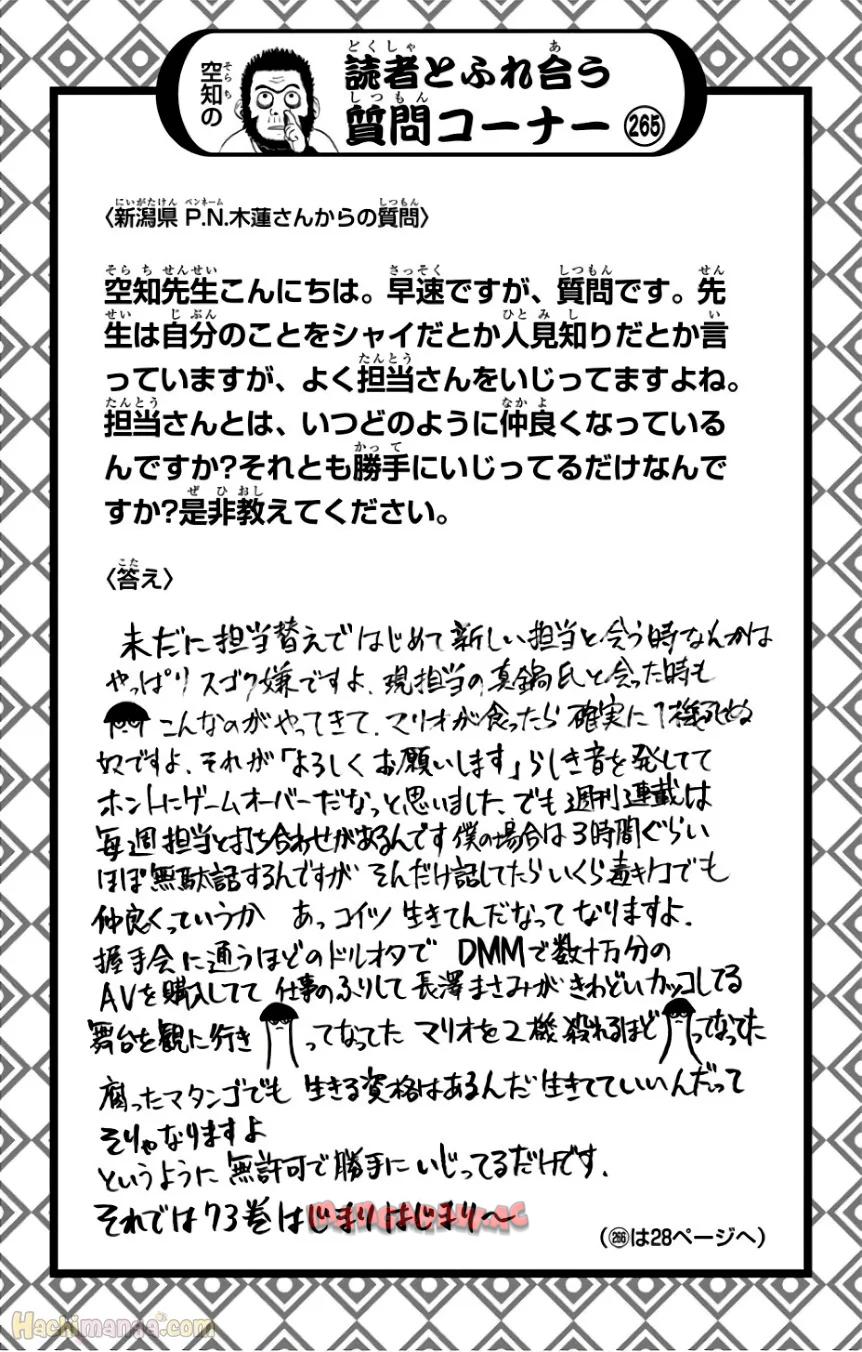 空知の
読者とふれ合う
質問コーナー 265
〈新潟県 P.N.木蓮さんからの質問〉
空知先生こんにちは。早速ですが、質問です。先
生は自分のことをシャイだとか人見知りだとか言
っていますが、よく担当さんをいじってますよね。
担当さんとは、いつどのように仲良くなっている
んですか?それとも勝手にいじってるだけなんで
すか?是非教えてください。
〈答え〉
未だに担当替えではじめて新しい担当と会う時なんかは
やっぱりスゴク嫌ですよ、現担当の真鍋氏と会った時も
こんなのがやってきて、マリオが食ったら確実に1機死ぬ
奴ですよ、それが「よろしくお願いします」らしき音を発してて
ホントにゲームオーバーだなっと思いました、でも週刊連載は
毎週担当と打ち合わせがあるんです僕の場合は3時間ぐらい
ほぼ無駄話するんですが そんだけ話してたらいくら毒キノコでも
仲良くっていうか あっコイツ 生きてんだなって なりますよ.
握手会に通うほどのドルオタで DMMで数十万分の
AVを購入してて 仕事のふりして長澤まさみがきわどいカッコしてる
舞台を観に行き ってなってた マリオを2機殺れるほど ってなってた
腐ったマタンゴでも 生きる資格はあるんだ生きてていいんだって
そりゃなりますよ
というように無許可で勝手にいじってるだけです.
それでは73巻はじまりはじまり〜
MANGARAW.AC
(266は28ページへ)
Hachimanga.com